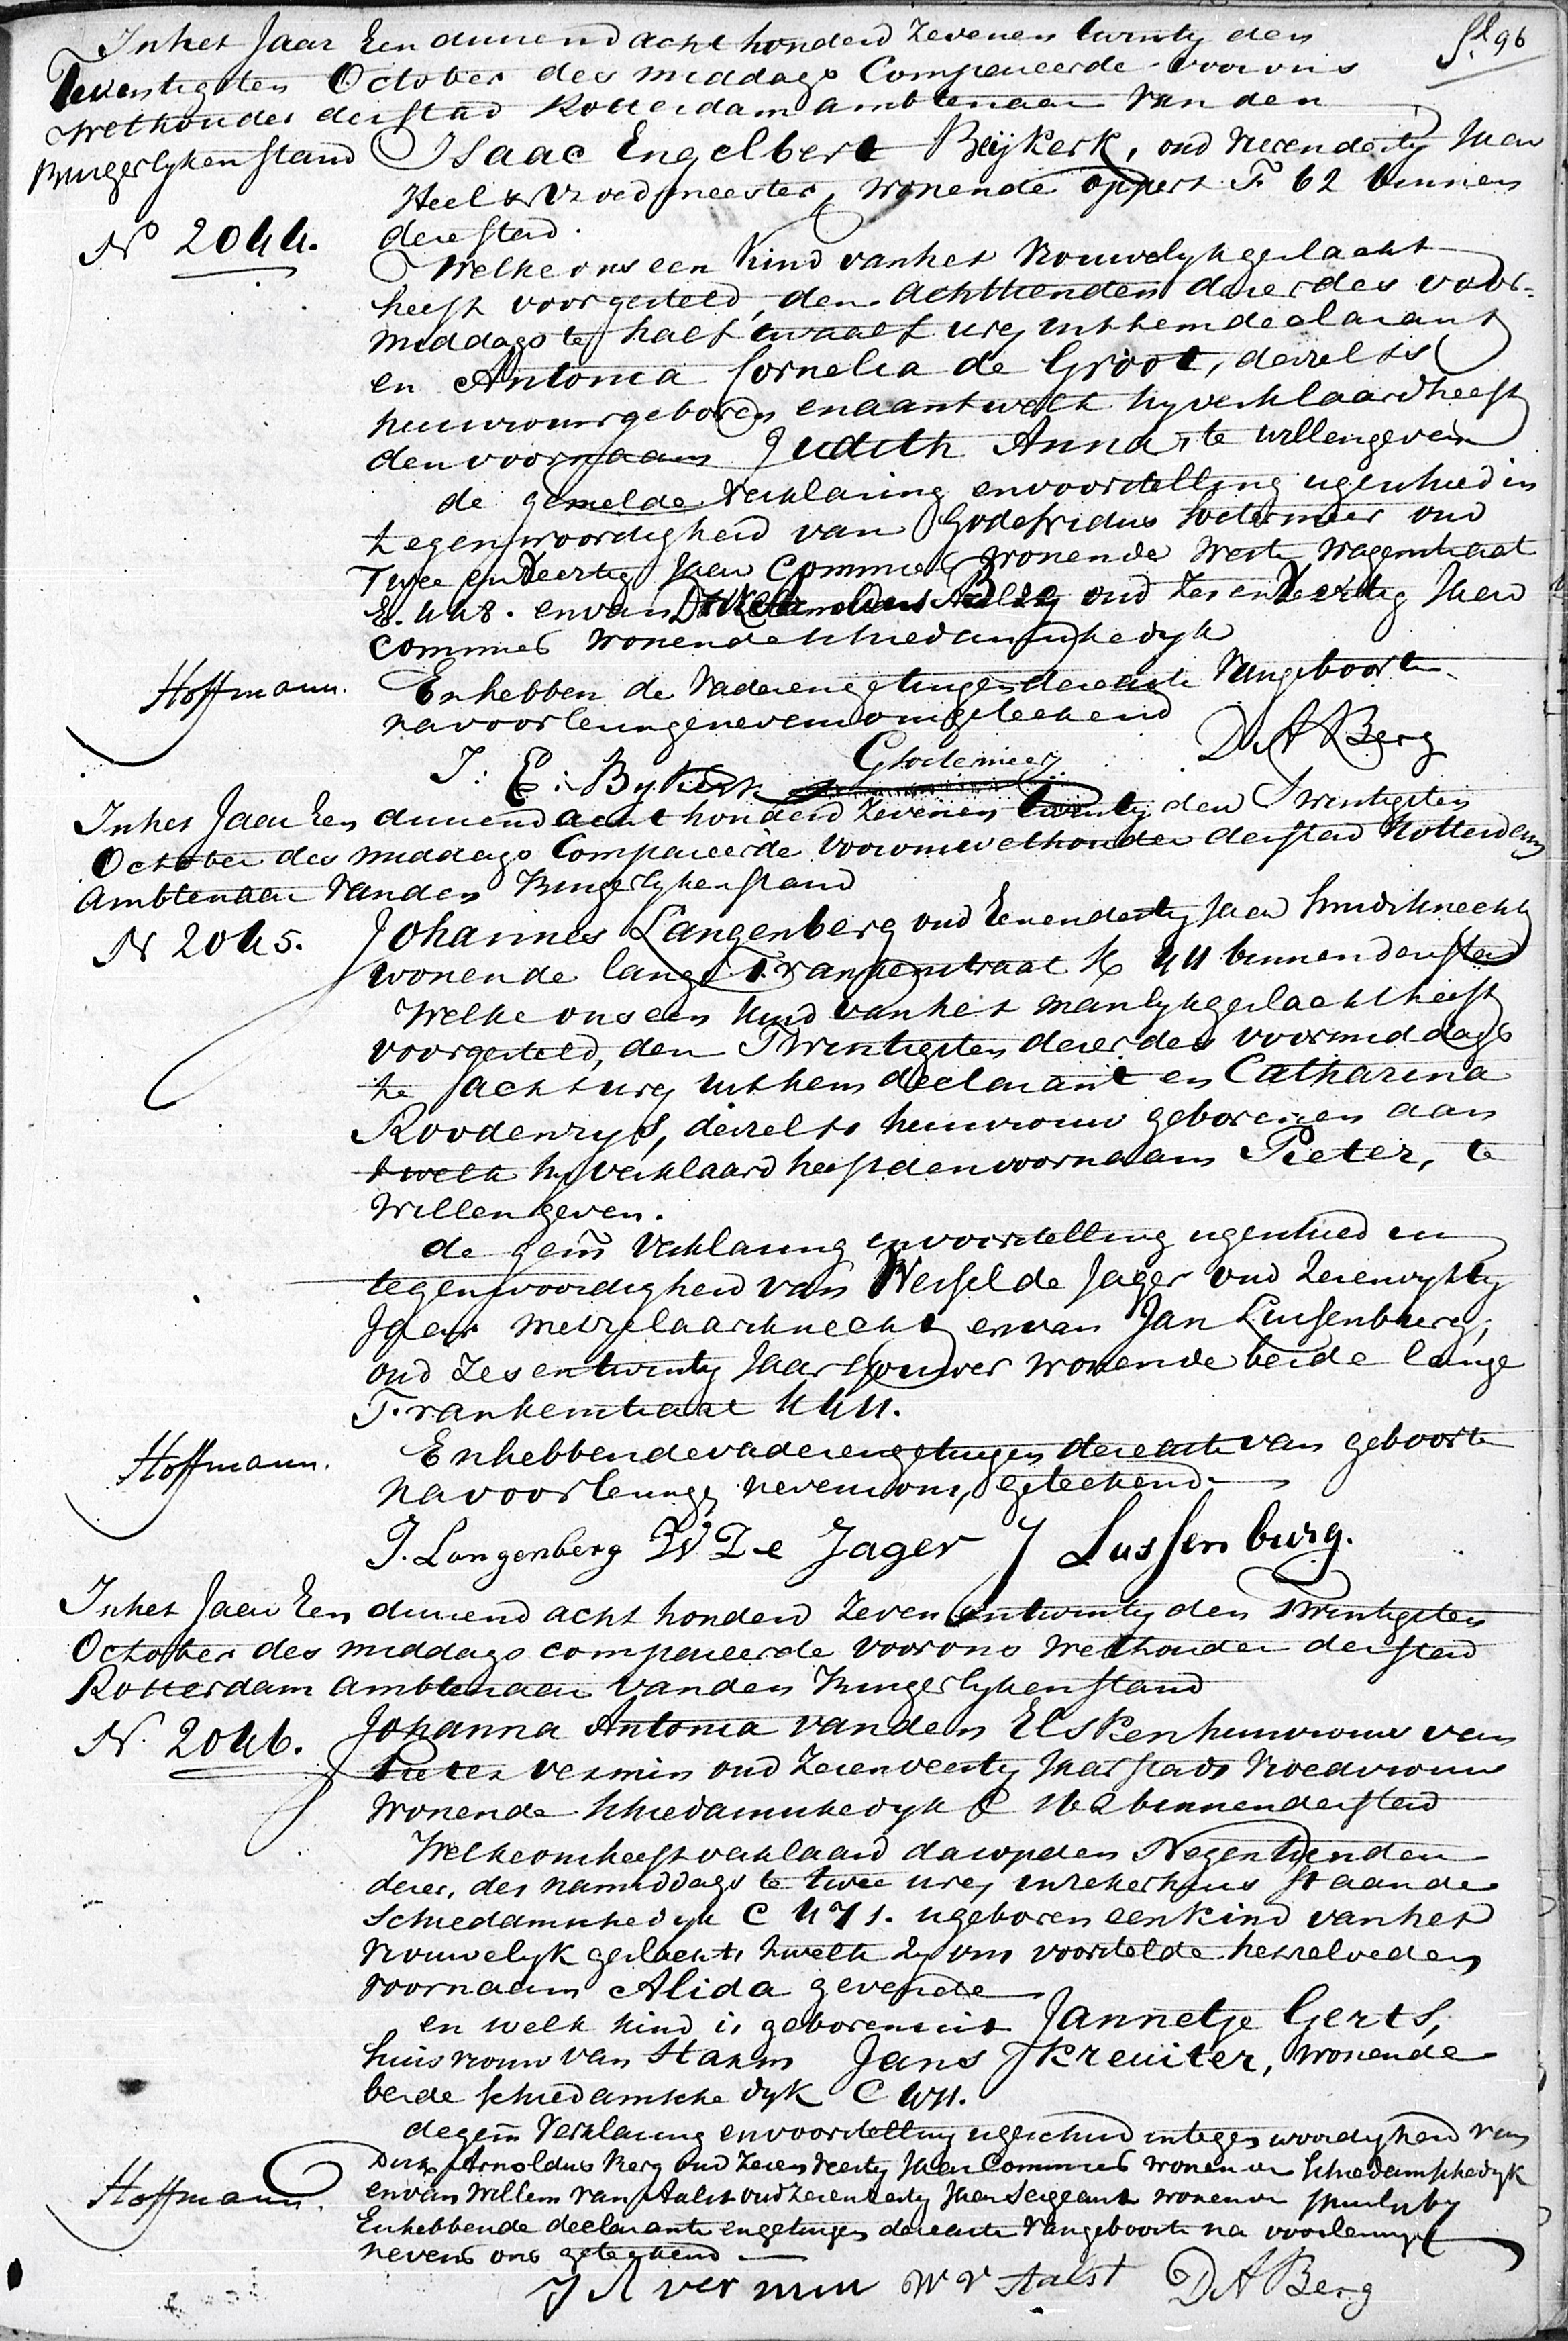 fl 96
In het Jaar Een duisend acht honderd Zeven en twintig den
Twentigsten October des middags Compareerde voor ons
Wethouder der stad Rotterdam ambtenaar van den
Burgerlyken stand Isaac Engelbert Beijkerk, oud Jaar
Heel & Vroedmeester, wonende oppert F 62 binnen
N° 2044. dese stad.
Welke ons een Kind van het Vrouwelyk geslacht
heeft voorgesteld, den Achttienden deser des voor-
middags te half twaalf ure, uit hem declarant
en Antonia Cornelia de Groot, deszelfs
huisvrouw geboren en aan twelk hy verklaard heeft
den voornaam Judith Anna, te willen geven
de gemelde verklaring en voorstelling is geschied in
tegenwoordigheid van Godefridus Soetermeer oud
Twee en Veertig Jaar Commies wonende Weste Wagenstraat
E. 448. en van Dirk Arnoldus Berg oud Zes en Veertig Jaar
Commies wonende Schiedamschedyk
Hoffmann. En hebben de Vader en getuigen dese acte van geboorte
na voorlezing nevens ons geteekend
J: E: Bykerk G Soetemeer D A Berg
In het Jaar Een duisend acht honderd Zeven en twintig den Twintigsten
October des middags Compareerde voor ons wethouder der stad Rotterdam
Ambtenaar Van den Burgerlyken stand
N 2045. Johannes Langenberg oud Een en dertig Jaar Smidsknecht
wonende lange Frankenstraat K 411 binnen dese stad
Welke ons een kind van het manlyk geslacht heeft
voorgesteld, den Twintigsten deser des voormiddags
te acht ure, uit hem declarant en Catharina
Roodenrys, deszelfs huisvrouw geboren en aan
twelk hy verklaard heeft den voornaam Pieter, te
willen geven.
de gem̄ Verklaring en voorstelling is geschied in
tegenwoordigheid van Wessel de Jager oud Zes en vyftig
Jaar Metzelaarsknecht en van Jan Lussenburg,
oud Zes en twintig Jaar Sjouwer wonende beide lange
Frankenstraat K 411.
Hoffmann. En hebben de vader en getuigen dese acte van geboorte
na voorlezing, nevens ons, geteekend.
J. Langenberg W De Jager J Lussenburg.
In het Jaar Een duisend acht honderd Zeven en twintig den Twintigsten
October des middags compareerde voor ons Wethouder der stad
Rotterdam ambtenaar van den Burgerlyken stand
N. 2046. Johanna Antonia van den Elsken huisvrouw van
Pieter Vermin oud Zes en veertig Jaar stads Vroedvrouw
Wonende Schiedamschedyk C 162 binnen dese stad
Welke ons heeft verklaard dat op den Negentienden
deser, des namiddags te twee ure, in zeker huis staande
Schiedamschedyk C 471. is geboren een kind van het
Vrouwelyk geslacht, hwelk zy ons voorstelde hetzelve den
voornaam Alida gevende
en welk kind is geboren uit Jannetje Gerts,
huisvrouw van Harm Jans Kreuiter, wonende
beide Schiedamsche dyk C 471.
de gem̄ Verklaring en voorstelling is geschied in tegenwoordigheid van
Dirk Arnoldus Berg oud Zes en Veertig Jaar Commies wonende Schiedamschedyk
Hoffmann. en van Willem van Aalst oud Jaar Sergeant wonende
En hebben de declarante en getuigen dese acte van geboorte na voorlezing
nevens ons geteekend
J A ver min W V Aalst D A Berg